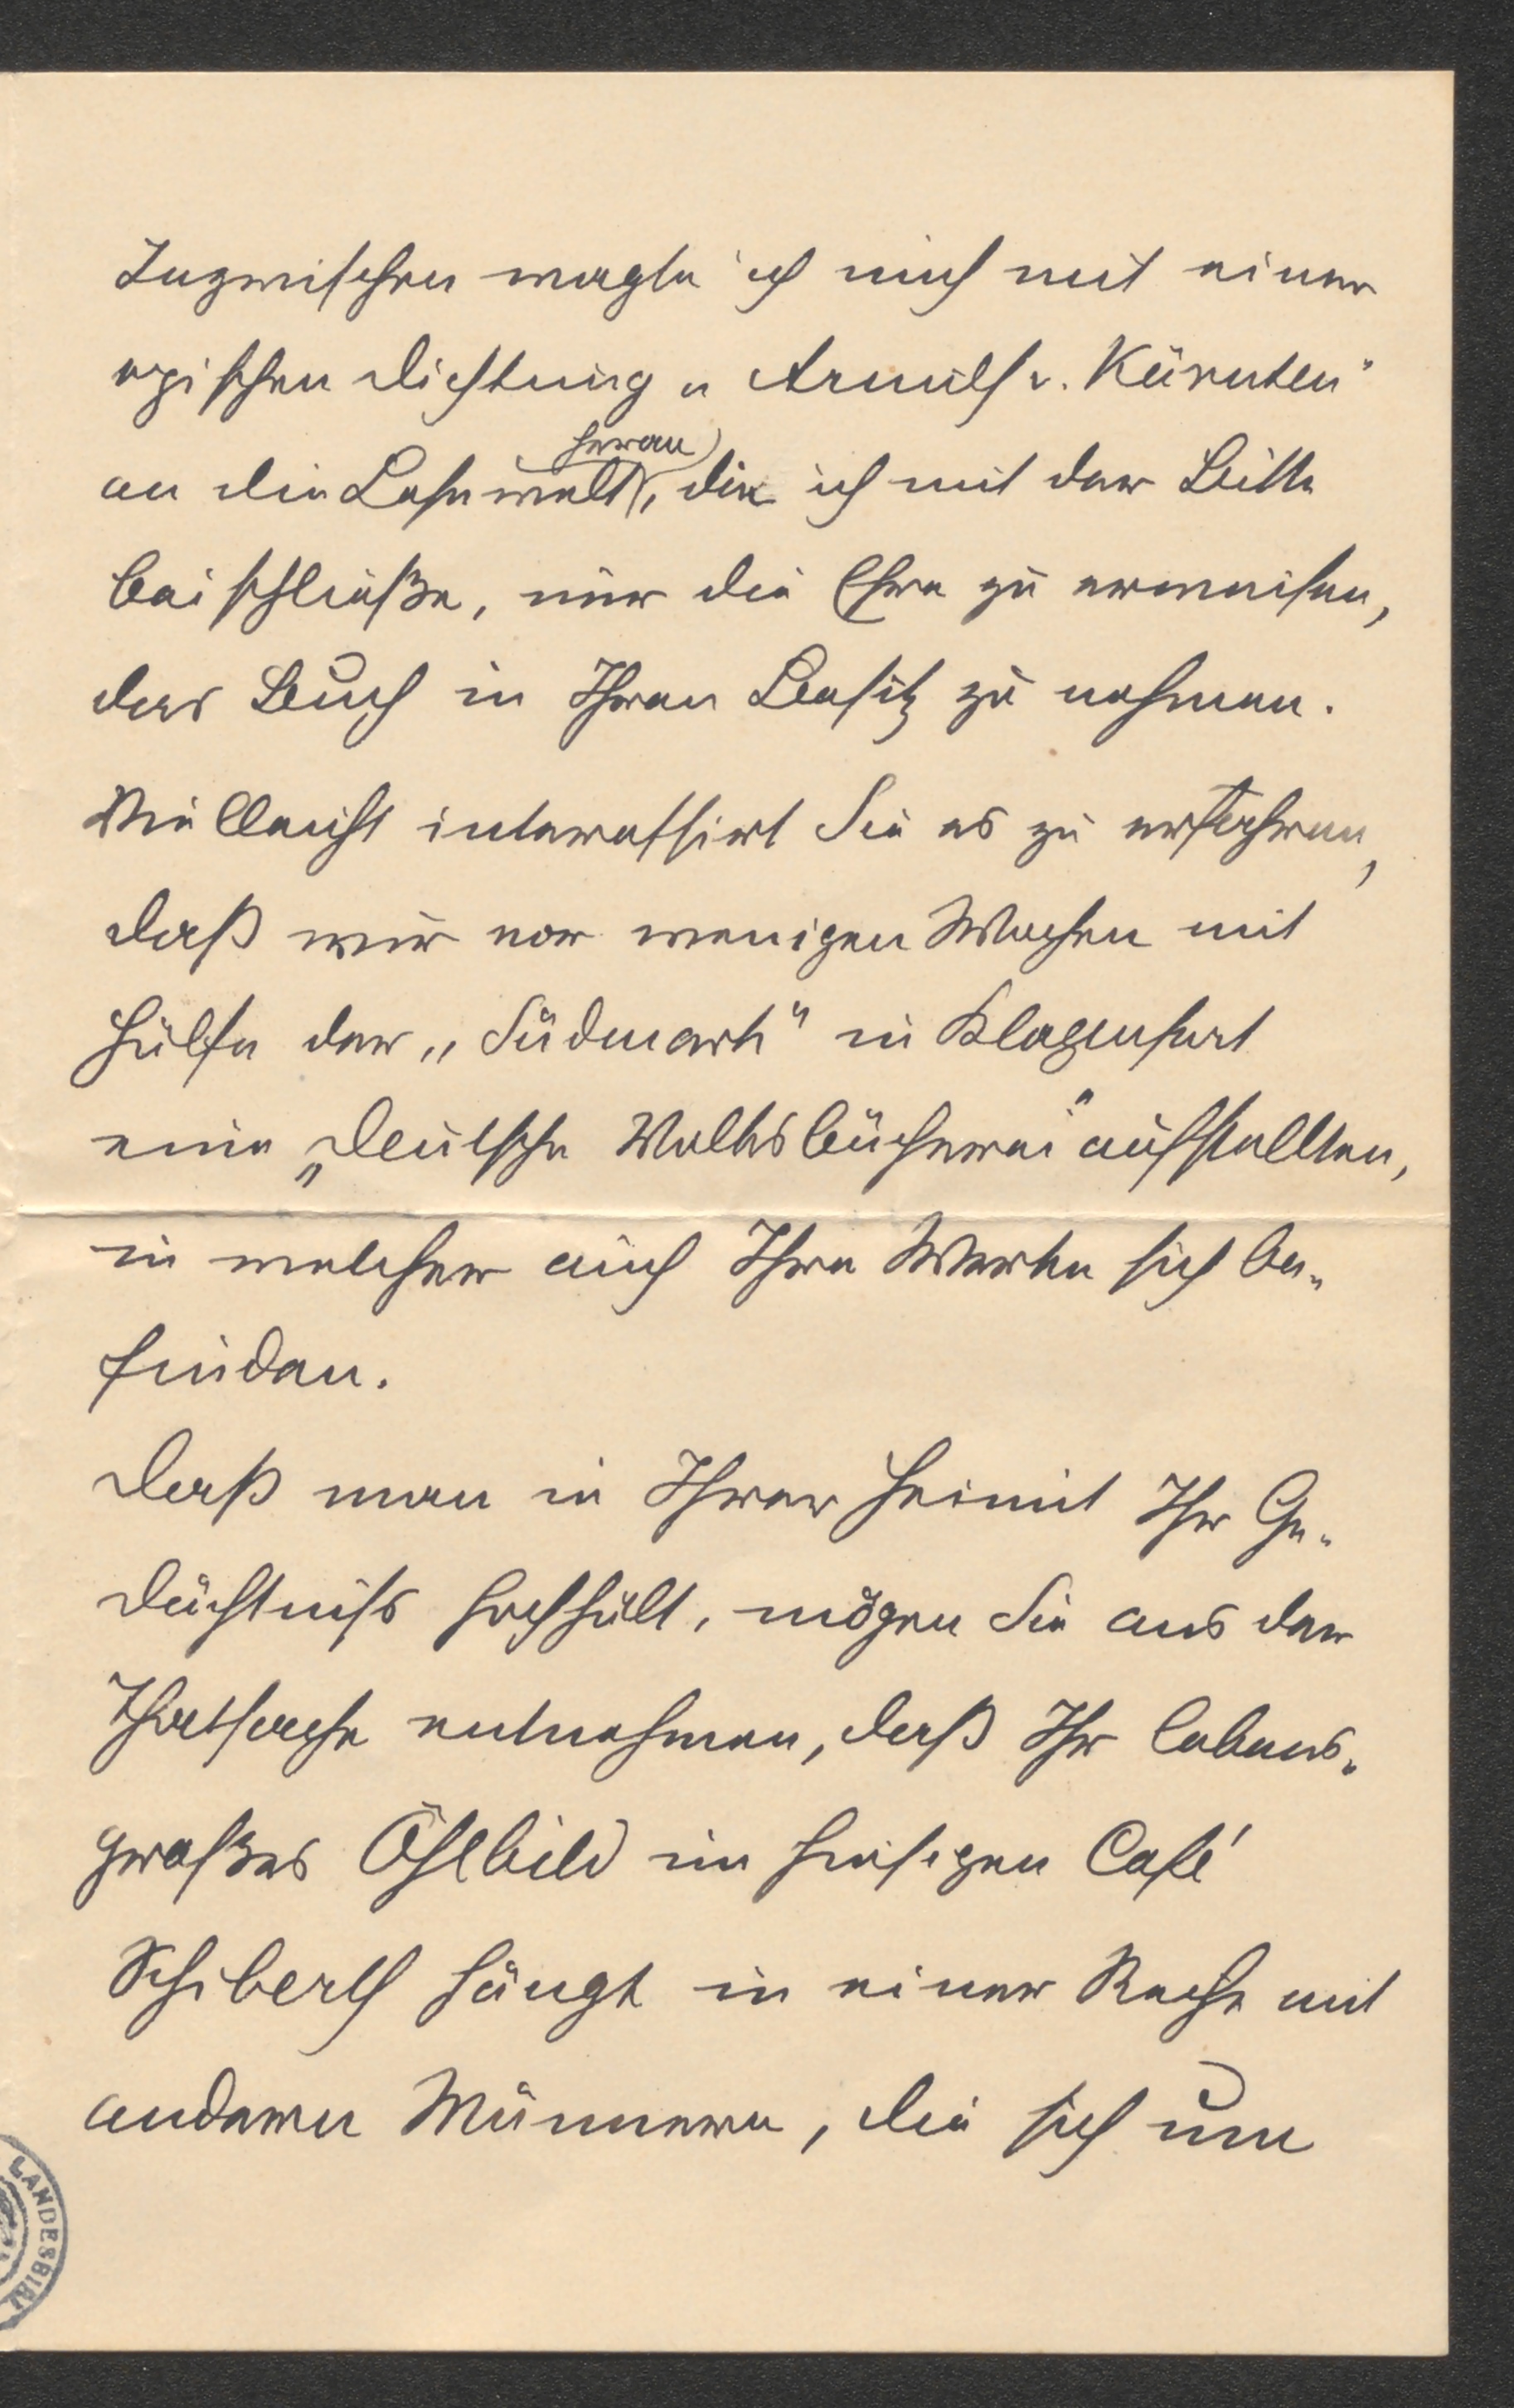 Inzwischen wagte ich mich mit einer
epischen Dichtung „Arnulf v. Kärnten“
an die Lesewelt heran, die ich mit der Bitte
beischließe, mir die Ehre zu erweisen,
das Buch in Ihren Besitz zu nehmen.
Vielleicht interessirt Sie es zu erfahren,
daß wir vor wenigen Wochen mit
Hülfe der „Südmark“ in Klagenfurt
eine „Deutsche Volksbücherei“ aufstellten,
in welcher auch Ihre Werke sich be-
finden.
Daß man in Ihrer Heimat Ihr Ge-
dächtniß hochhält, mögen Sie aus der
Thatsache entnehmen, daß Ihr lebens-
großes Öhlbild im hiesigen Café
Schiberth hängt in einer Reihe mit
anderen Männern, die sich um
LANDESBIBL